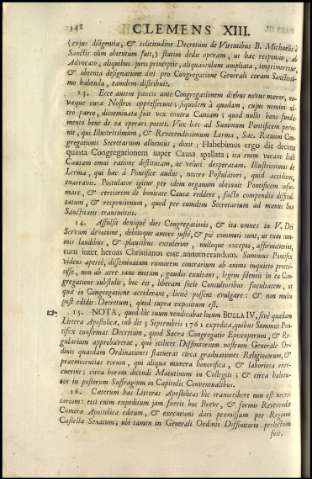 342 CLEMENS XIII.
(cujus diligentia, & solicitudine Decretum de Virtutibus B. Michaelis à
Sanctis olim obtentum fuit,) statim dedit operam, ut hæc responsio, ab
Advocato, aliquibus juris principiis, aliquantulum ampliata, imprimeretur,
& obtenta designatione diei pro Congregatione Generali coram Sanctissi-
mo habenda, tandem distribuit.
13. Ecce autem paucis ante Congregationem diebus novus mæror, no-
vaque cura Nostros oppresserunt; siquidem à quodam, cujus nomini al-
to parco, disseminata fuit vox contra Causam; quod nullis bono funda-
mento bene de ea sperari posset. Vox hæc ad Summum Pontificem perve-
nit, qui Illustrissimum, & Reverendissimum Lerma, Sac. Rituum Con-
gregationis Secretarium alloquens, dixit: Habebimus ergo die decima
quinta Congregationem super Causa spoliata; ita enim vocare sibi
Causam omni ratione destitutam, ac veluti desperatam. Illustrissimus de
Lerma, qui hæc à Pontifice audiit, nostro Postulatori, quid accidisset,
enarravit. Postulator igitur per idem organum obtinuit Pontificem infor-
mare, & certiorem de bonitate Causæ reddere, facto compendio distribu-
tarum, & responsionum, quod per eumdem Secretarium ad manus Suæ
Sanctitatis transmisit.
14. Affulsit denique dies Congregationis, & ita omnes in V. Dei
Servum devotione, debitoque amore justè, & piè commoti sunt, ut eum sum-
mis laudibus, & plausibus extulerint, nulloque excepto, affirmaverint,
eum inter heroas Christianos esse annumerandum. Summus Pontifex
videns apertè, disseminatum rumorem contrarium ab animo iniquiter proces-
sisse, non ab aere sano natum, gaudio exultans, legem silentii in ea Con-
gregatione sustulit, hoc est, liberam fecit Consultoribus facultatem, ut
quæ in Congregatione acciderant, licitè possent evulgare: & non multo
post edidit Decretum, quod supra expositum est.
15. NOTA, quod hic suum vendicabat locum BULLA IV, sive quædam
Littera Apostolica, sub die 5 Septembris 1761 expedita, quibus Summus Pon-
tifex confirmat Decretum, quod Sacra Congregatio Episcoporum, & Re-
gularium approbaverat, qui scilicet Diffinitorium nostrum Generale Or-
dinis quædam Ordinationes statuerat circa graduationes Religiosorum, &
præeminentias eorum, qui aliqua munera honorifica, & laboriosa exer-
cuerint: circa horam dicendi Matutinum in Collegiis: & circa habitu-
ros in posterum Suffragium in Capitulis Conventualibus.
16. Cæterum has Litteras Apostolicas hic transcribere non est neces-
sarium: tùm enim expeditum jam fuerit hoc Breve, & formis Reverendæ
Cameræ Apostolicæ editum, & executioni dari permissum per Regium
Castellæ Senatum, ubi tamen in Generali Ordinis Diffinitorio perlectum
fuit,